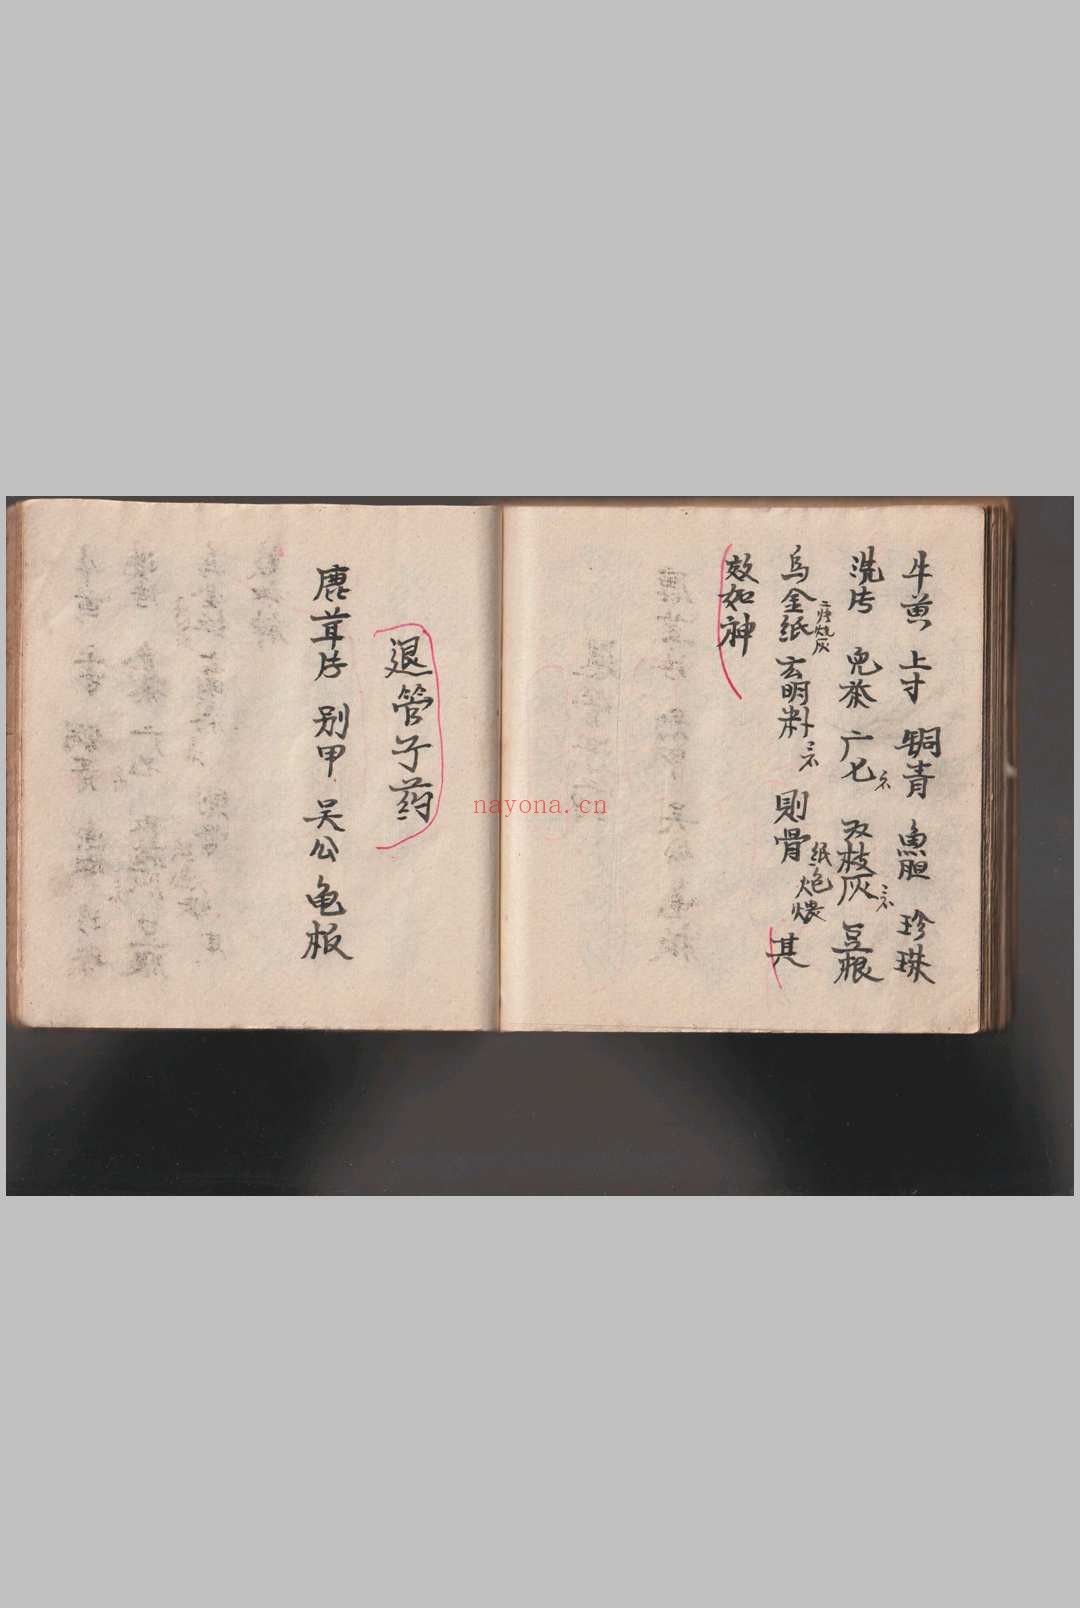 牛黄 上寸 铜青 鱼胆 珍珠
洗片 児茶 广七 双枝灰 豆根
乌金纸 二張炮灰 玄明粉 則骨 纸炮煨 其
效如神
退管子药
鹿茸片 别甲 吴公 龟板
nayona.cn